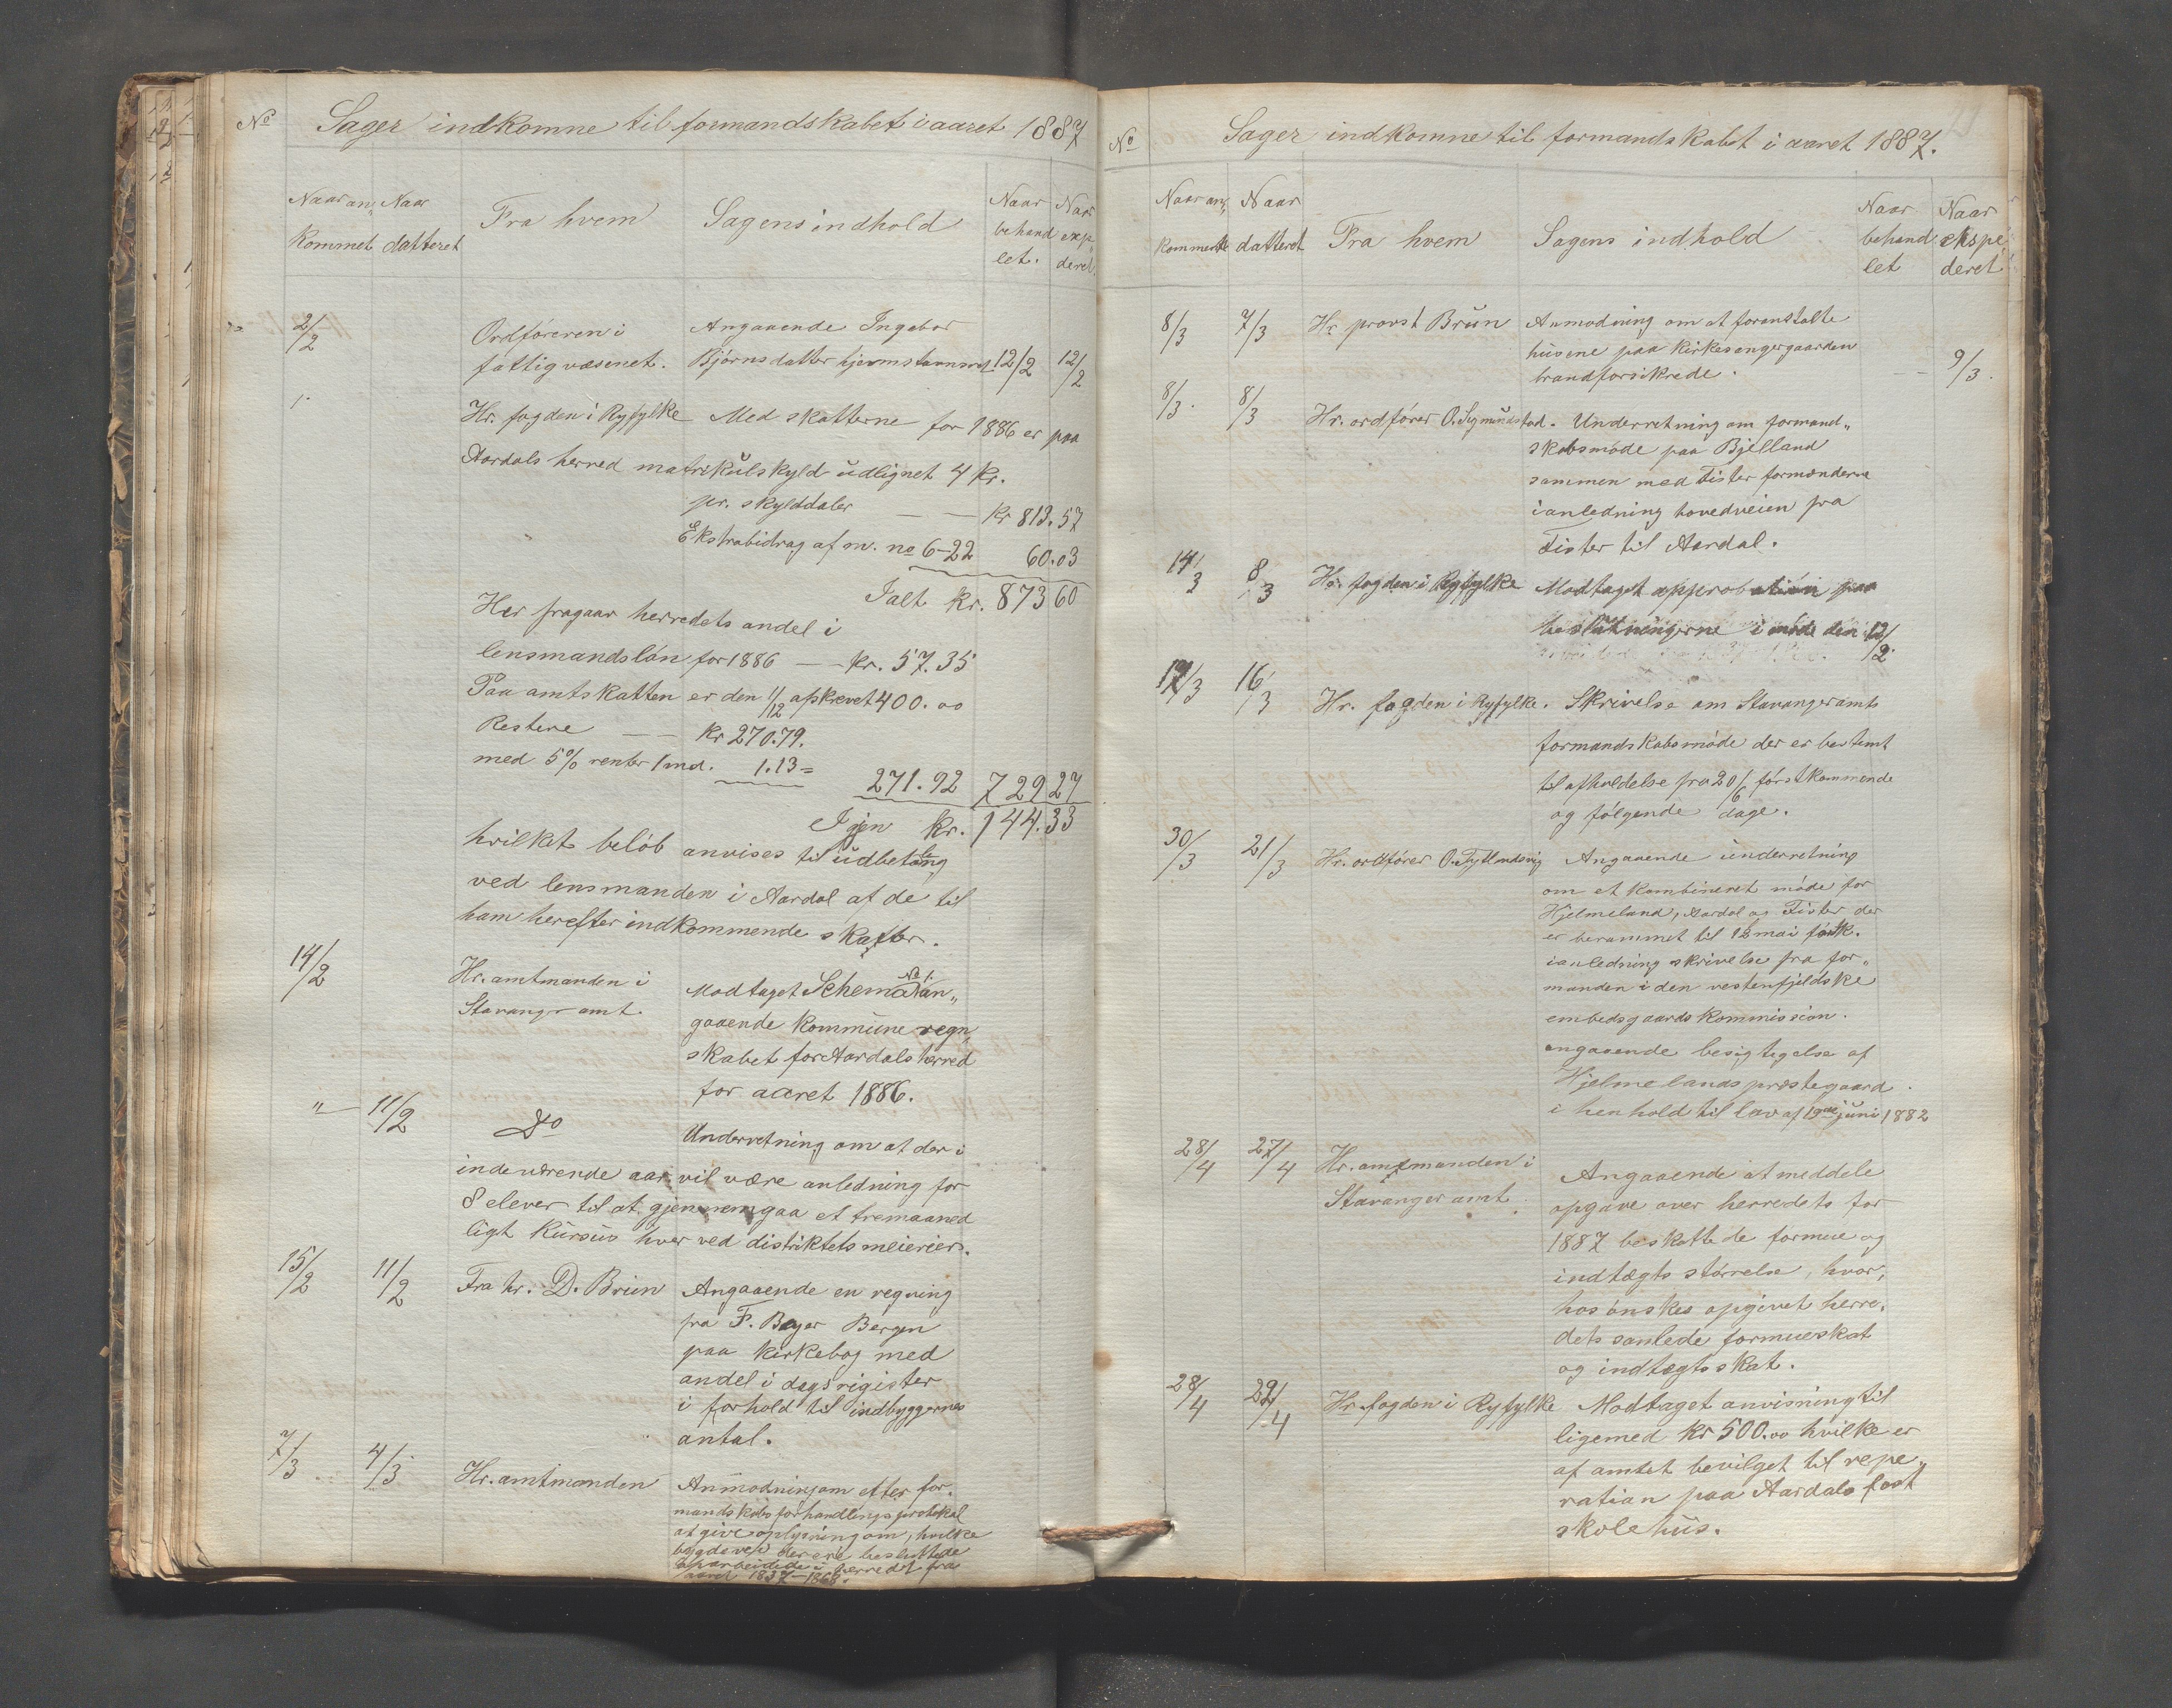 No Sager indkomne til formandskabet i aaret 1887
Naar an„ Naar Fra hvem Sagens indhold Naar Naar
kommet datteret behand exp„
let. deret.
2/2 Ordføreren i Angaaende Ingebor
fattigvæsenet. Bjørnsdatter hjemstavnsret 12/2 12/2
Hr. fogden i Ryfylke Med skatterne for 1886 er paa
Aardals herred matrikulskyld udlignet 4 kr.
pr. skylddaler — — kr 813.57
Ekstrabidrag af m. no 6-22 60.03
Ialt kr. 873 60
Her fragaar herredets andel i
lensmandsløn for 1886 — — kr. 57.35
Paa amtskatten er den 11/12 afskrevet 400.00
Restere — — kr 270.79.
med 5% renter 1 md. 1.13 =
271.92 729 27
Igjen kr. 144.33
hvilket beløb anvises til udbetaling
ved lensmanden i Aardal af de til
ham herefter indkommende skatter.
14/2 Hr. amtmanden i Modtaget Schema No 1. an„
Stavanger amt. gaaende kommune regn„
skabet for Aardals herred
for aaret 1886.
„ 11/2 Do Underretning om at der i
indeværende aar vil være anledning for
8 elever til at gjennemgaa et tremaaned
ligt kursus hver ved distriktets meierier.
15/2 11/2 Fra hr. D. Brun Angaaende en regning
fra F. Beyer Bergen
paa kirkebog med
andel i dagsrigister
i forhold til indbyggernes
antal.
7/3 4/3 Hr. amtmanden Anmodning om efter for„
mandskabsforhandlingsprotokol
at give oplysning om, hvilke
bygdeveie der ere besluttede
oparbeidede i herredet fra
aaret 1837–1868.
No Sager indkomne til formandskabet i aaret 1887.
Naar an„ Naar Fra hvem Sagens indhold Naar Naar
kommente datteret behand ekspe„
let deret
8/3 7/3 Hr. provst Brun Anmodning om at foranstalte
husene paa kirkesangergaarden
brandforsikrede. — — 9/3.
8/3. 8/3 Hr. ordfører O. Sigmundstad. Underretning om formand„
skabsmøde paa Bjelland
sammen med Fister formænderne
i anledning hovedveien fra
Fister til Aardal.
14/3 8/3 Hr. fogden i Ryfylke Modtaget approbation paa
beslutningerne i møde den 12/2.
17/3 16/3 Hr. fogden i Ryfylke. Skrivelse om Stavanger amts
formandskabsmøde der er bestemt
til afholdelse fra 20/6 førstkommende
og følgende dage.
30/3 21/3 Hr. ordfører O. Tytlandsvig Angaaende underretning
om et kombineret møde for
Hjelmeland, Aardal og Fister der
er berammet til 12 mai førstk.
i anledning skrivelse fra for„
manden i den vestenfjeldske
embedsgaards kommission.
angaaende besigtigelse af
Hjelmelands prestegaard.
i henhold til lov af 1ste juni 1882
28/4 27/4 Hr. amtmanden i Angaaende at meddele
Stavanger amt. opgave over herredets for
1887 beskattede formue og
indtægts størrelse, hvor„
hos ønskes opgivet herre„
dets samlede formueskat
og indtægtsskat.
28/4 22/4 Hr. fogden i Ryfylke Modtaget anvisning til
ligemed kr 500.00 hvilke er
af amtet bevilget til repe„
ration paa Aardals fast
skolehus.